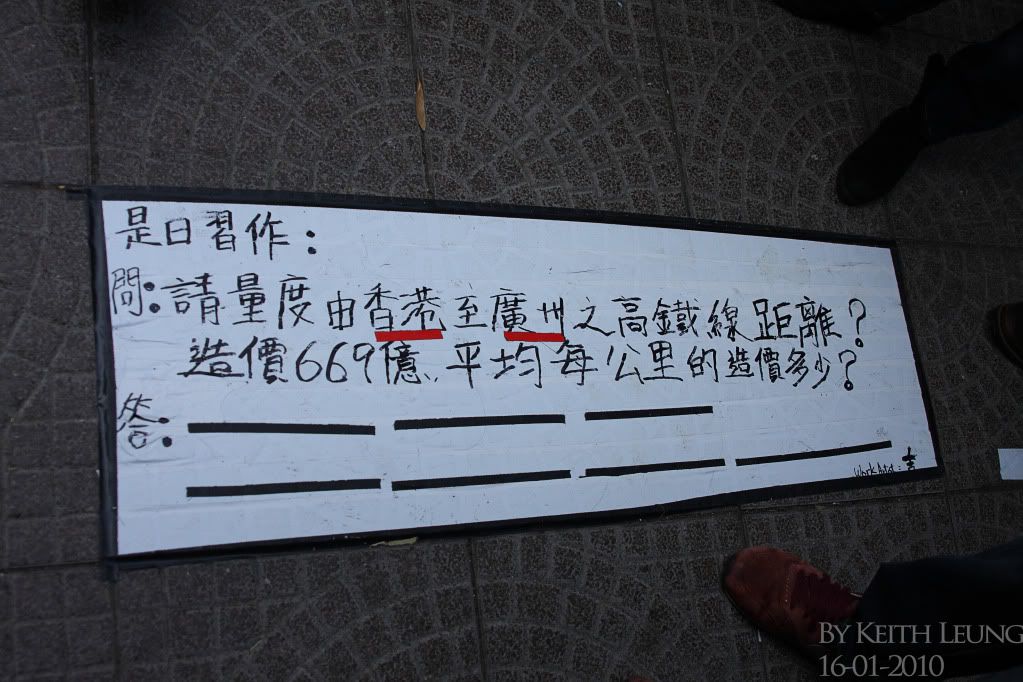 是日習作：
問：請量度由香港至廣州之高鐵線距離？
造價669億，平均每公里的造價多少？
答：
BY KEITH LEUNG
16-01-2010